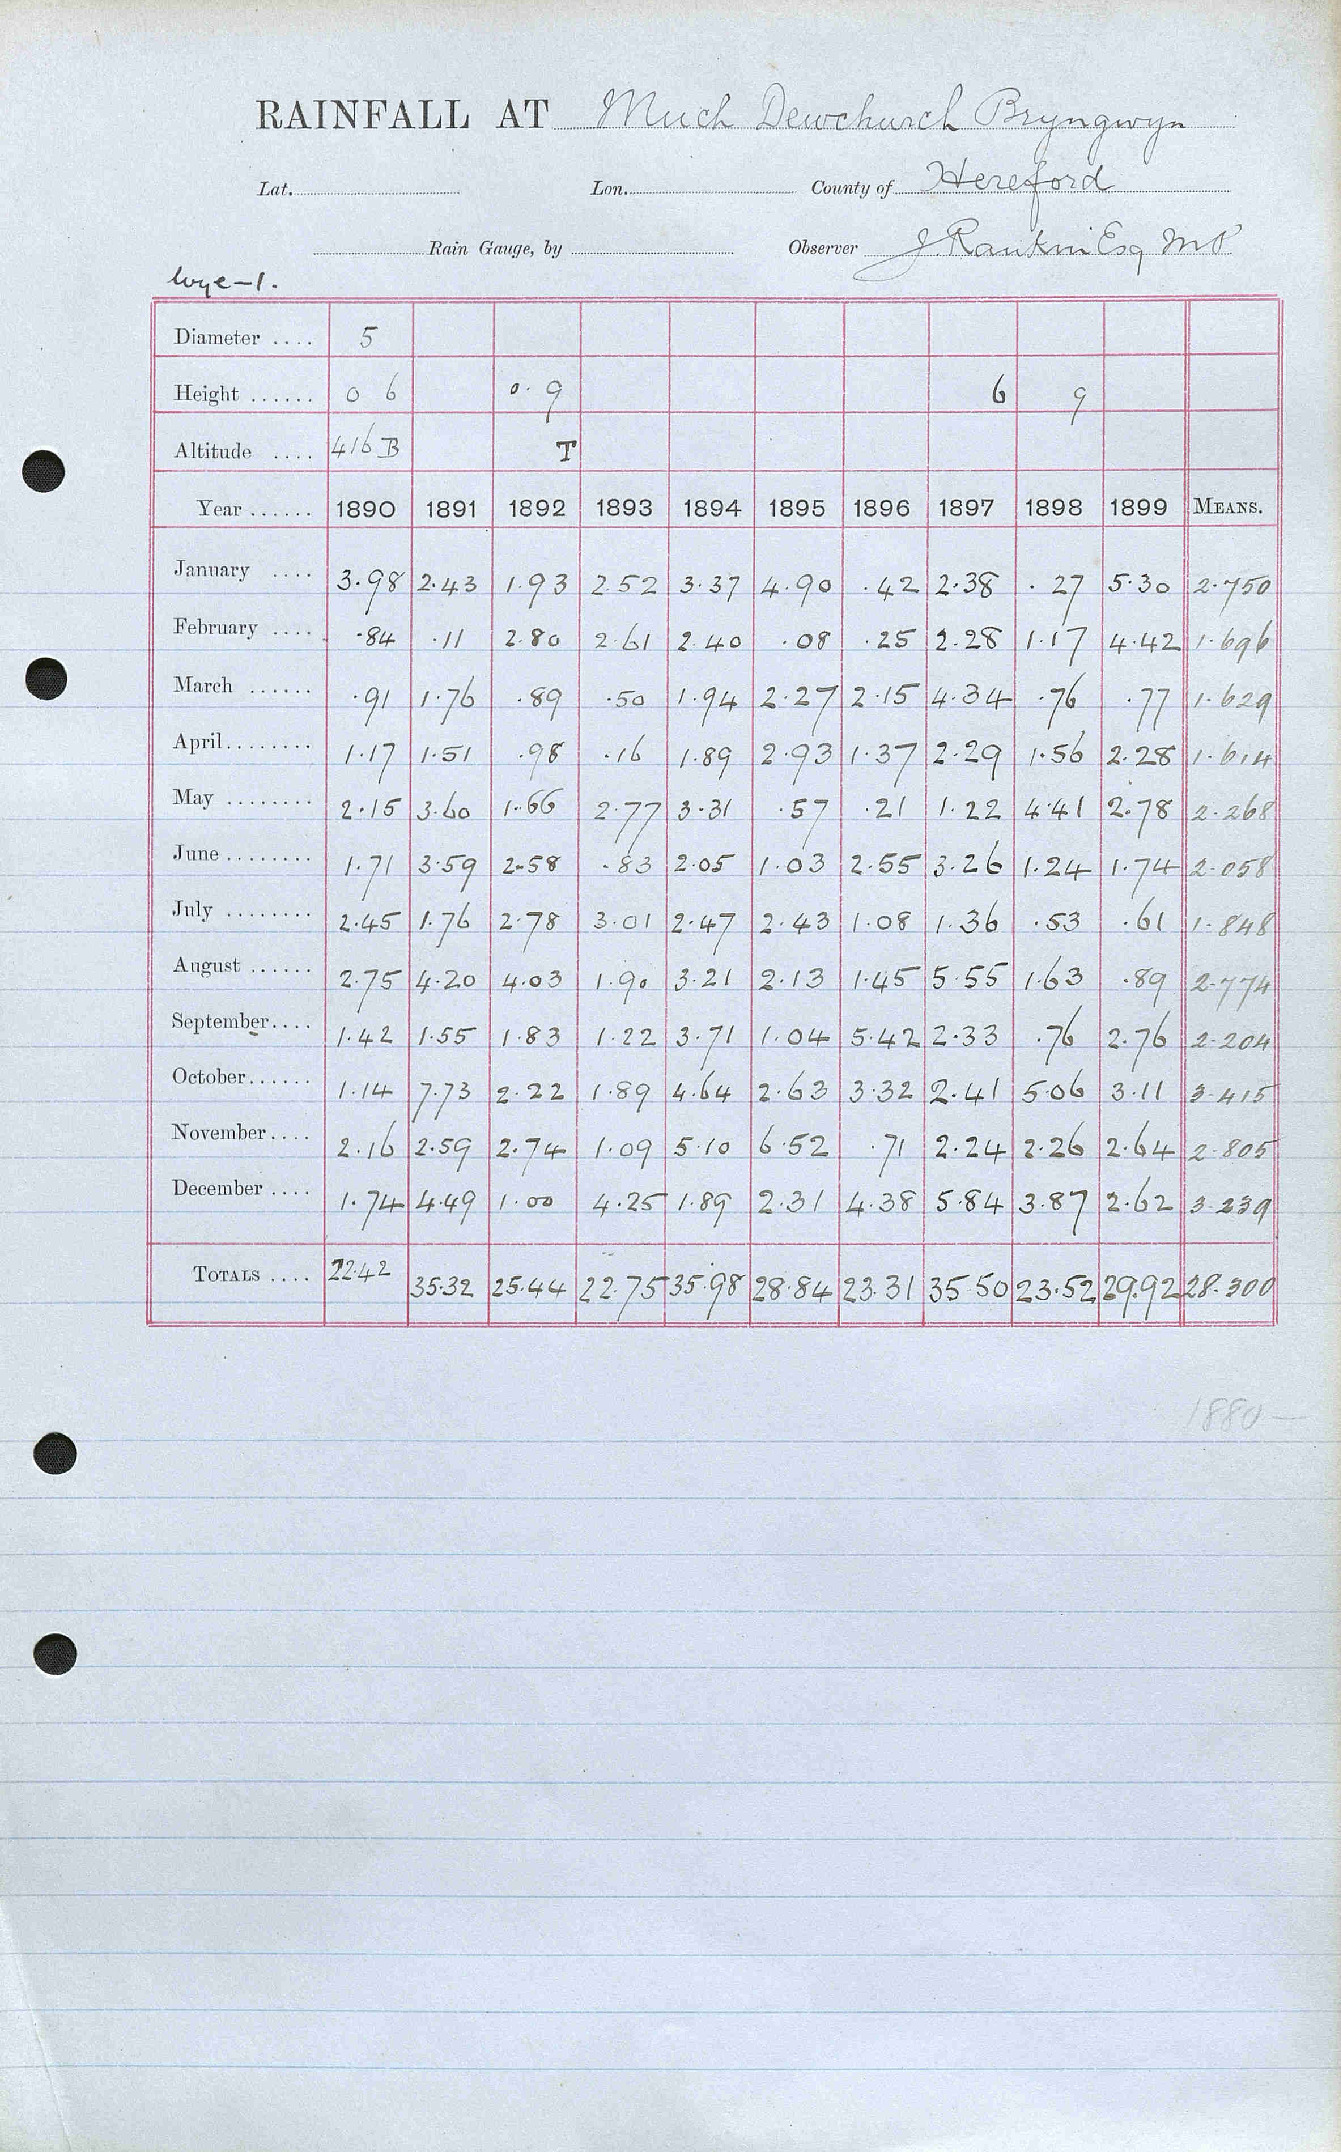 RAINFALL AT Much Dewchurch Bryngwyn
Lat. Lon. County of Hereford
Rain Gauge, by Observer J Rankin Esq MP
Wye-1.
Diameter .... 5
Height ...... 0 6 0. 9 6 9
Altitude .... 416 B T
Year ...... 1890 1891 1892 1893 1894 1895 1896 1897 1898 1899 MEANS.
January .... 3.98 2.43 1.93 2.52 3.37 4.90 .42 2.38 .27 5.30 2.750
February .... .84 .11 2.80 2.61 2.40 .08 .25 2.28 1.17 4.42 1.696
March ...... .91 1.76 .89 .50 1.94 2.27 2.15 4.34 .76 .77 1.629
April........ 1.17 1.51 .98 .16 1.89 2.93 1.37 2.29 1.56 2.28 1.614
May ........ 2.15 3.60 1.66 2.77 3.31 .57 .21 1.22 4.41 2.78 2.268
June ........ 1.71 3.59 2.58 .83 2.05 1.03 2.55 3.26 1.24 1.74 2.058
July ........ 2.45 1.76 2.78 3.01 2.47 2.43 1.08 1.36 .53 .61 1.848
August ...... 2.75 4.20 4.03 1.90 3.21 2.13 1.45 5.55 1.63 .89 2.774
September.... 1.42 1.55 1.83 1.22 3.71 1.04 5.42 2.33 .76 2.76 2.204
October...... 1.14 7.73 2.22 1.89 4.64 2.63 3.32 2.41 5.06 3.11 3.415
November.... 2.16 2.59 2.74 1.09 5.10 6.52 .71 2.24 2.26 2.64 2.805
December .... 1.74 4.49 1.00 4.25 1.89 2.31 4.38 5.84 3.87 2.62 3.239
TOTALS .... 22.42 35.32 25.44 22.75 35.98 28.84 23.31 35.50 23.52 29.92 28.300
1880—